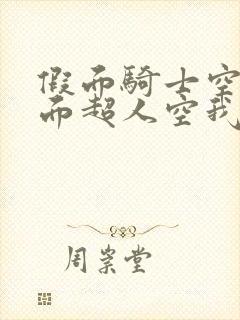 假而騎士空
而超人空我
周崇堂